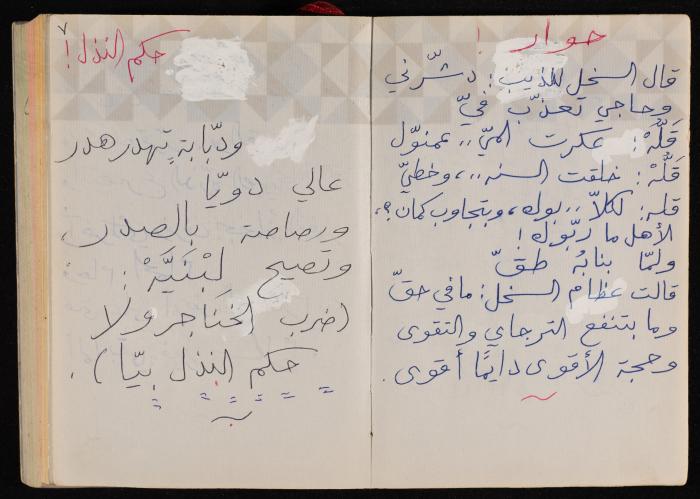 حوار !
قال السخل للذيب : دشّرني
وحاجي تعذّب فيّ
قَلَّهْ : عكرت الميّ .. عمنوّل
قَلَّهْ : خلقت السنه .. ، وخطيّ
قله : لكلاّ .. بوك ، وبتجاوب كمان ؟ ،
الأهل ما ربّوك !
ولمّا بنابُه طقّ
قالت عظام السخل : ما في حقّ
وما بتنفع الترجاي والتقوى
وحجة الأقوى دايمًا أقوى .
٧
حكم النذل !
ودبّابة تهدر هدر
عالي دويّا
ورصاصة بالصدر ،
وتصيح لِبْنَيَّهْ :
(ضرب الخَناجر ولا
حكم النذل بيّا) .